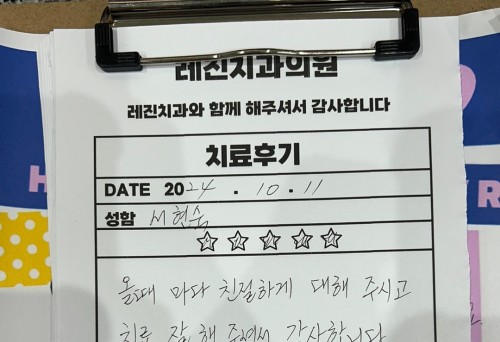 레진치과의원
레진치과와 함께 해주셔서 감사합니다
치료후기
DATE 2024 . 10 . 11
성함 서현숙
올때 마다 친절하게 대해 주시고
치료 잘 해 주셔서 감사합니다